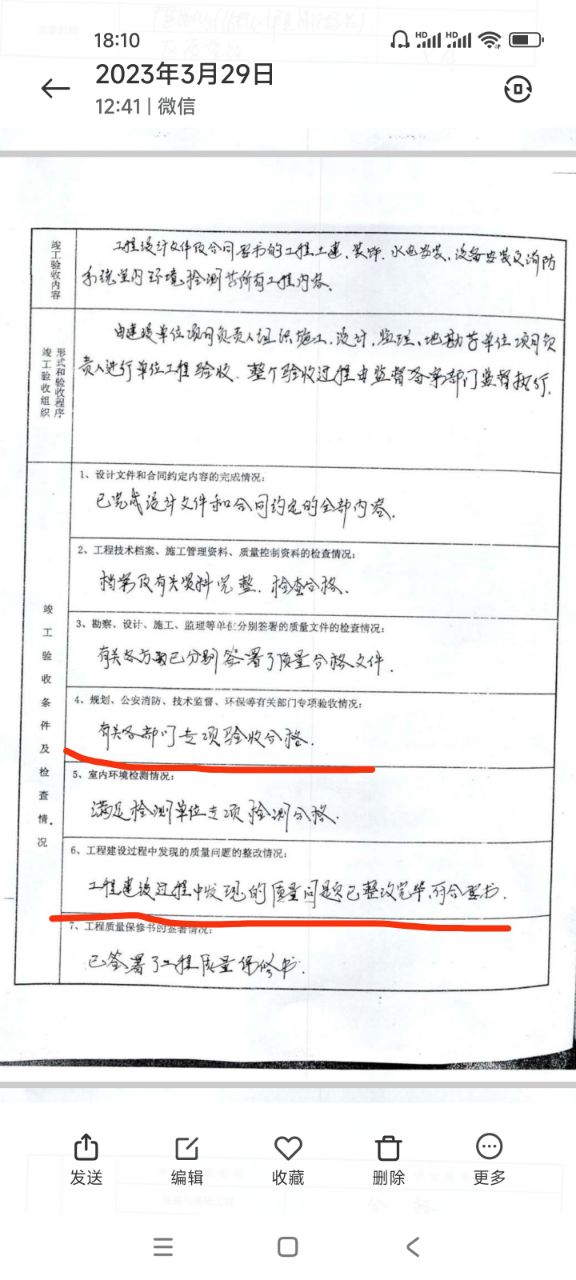 18:10
2023年3月29日
12:41 | 微信
竣工验收内容
工程设计文件及合同要求的工程土建、装饰、水电安装、设备安装及消防
系统室内环境检测等所有工程内容。
竣工验收组织
形式和验收程序
由建设单位项目负责人组织施工、设计、监理、地勘等单位项目负
责人进行单位工程验收。整个验收过程由监督备案部门监督执行。
竣工验收条件及检查情况
1、设计文件和合同约定内容的完成情况：
已完成设计文件和合同约定的全部内容。
2、工程技术档案、施工管理资料、质量控制资料的检查情况：
档案及有关资料完整．检查合格。
3、勘察、设计、施工、监理等单位分别签署的质量文件的检查情况：
有关各方面已分别签署了质量合格文件．
4、规划、公安消防、技术监督、环保等有关部门专项验收情况：
有关各部门专项验收合格．
5、室内环境检测情况：
满足检测单位专项检测合格．
6、工程建设过程中发现的质量问题的整改情况：
工程建设过程中发现的质量问题已整改完毕，符合要求．
7、工程质量保修书的签署情况：
已签署了工程质量保修书．
发送
编辑
收藏
删除
更多